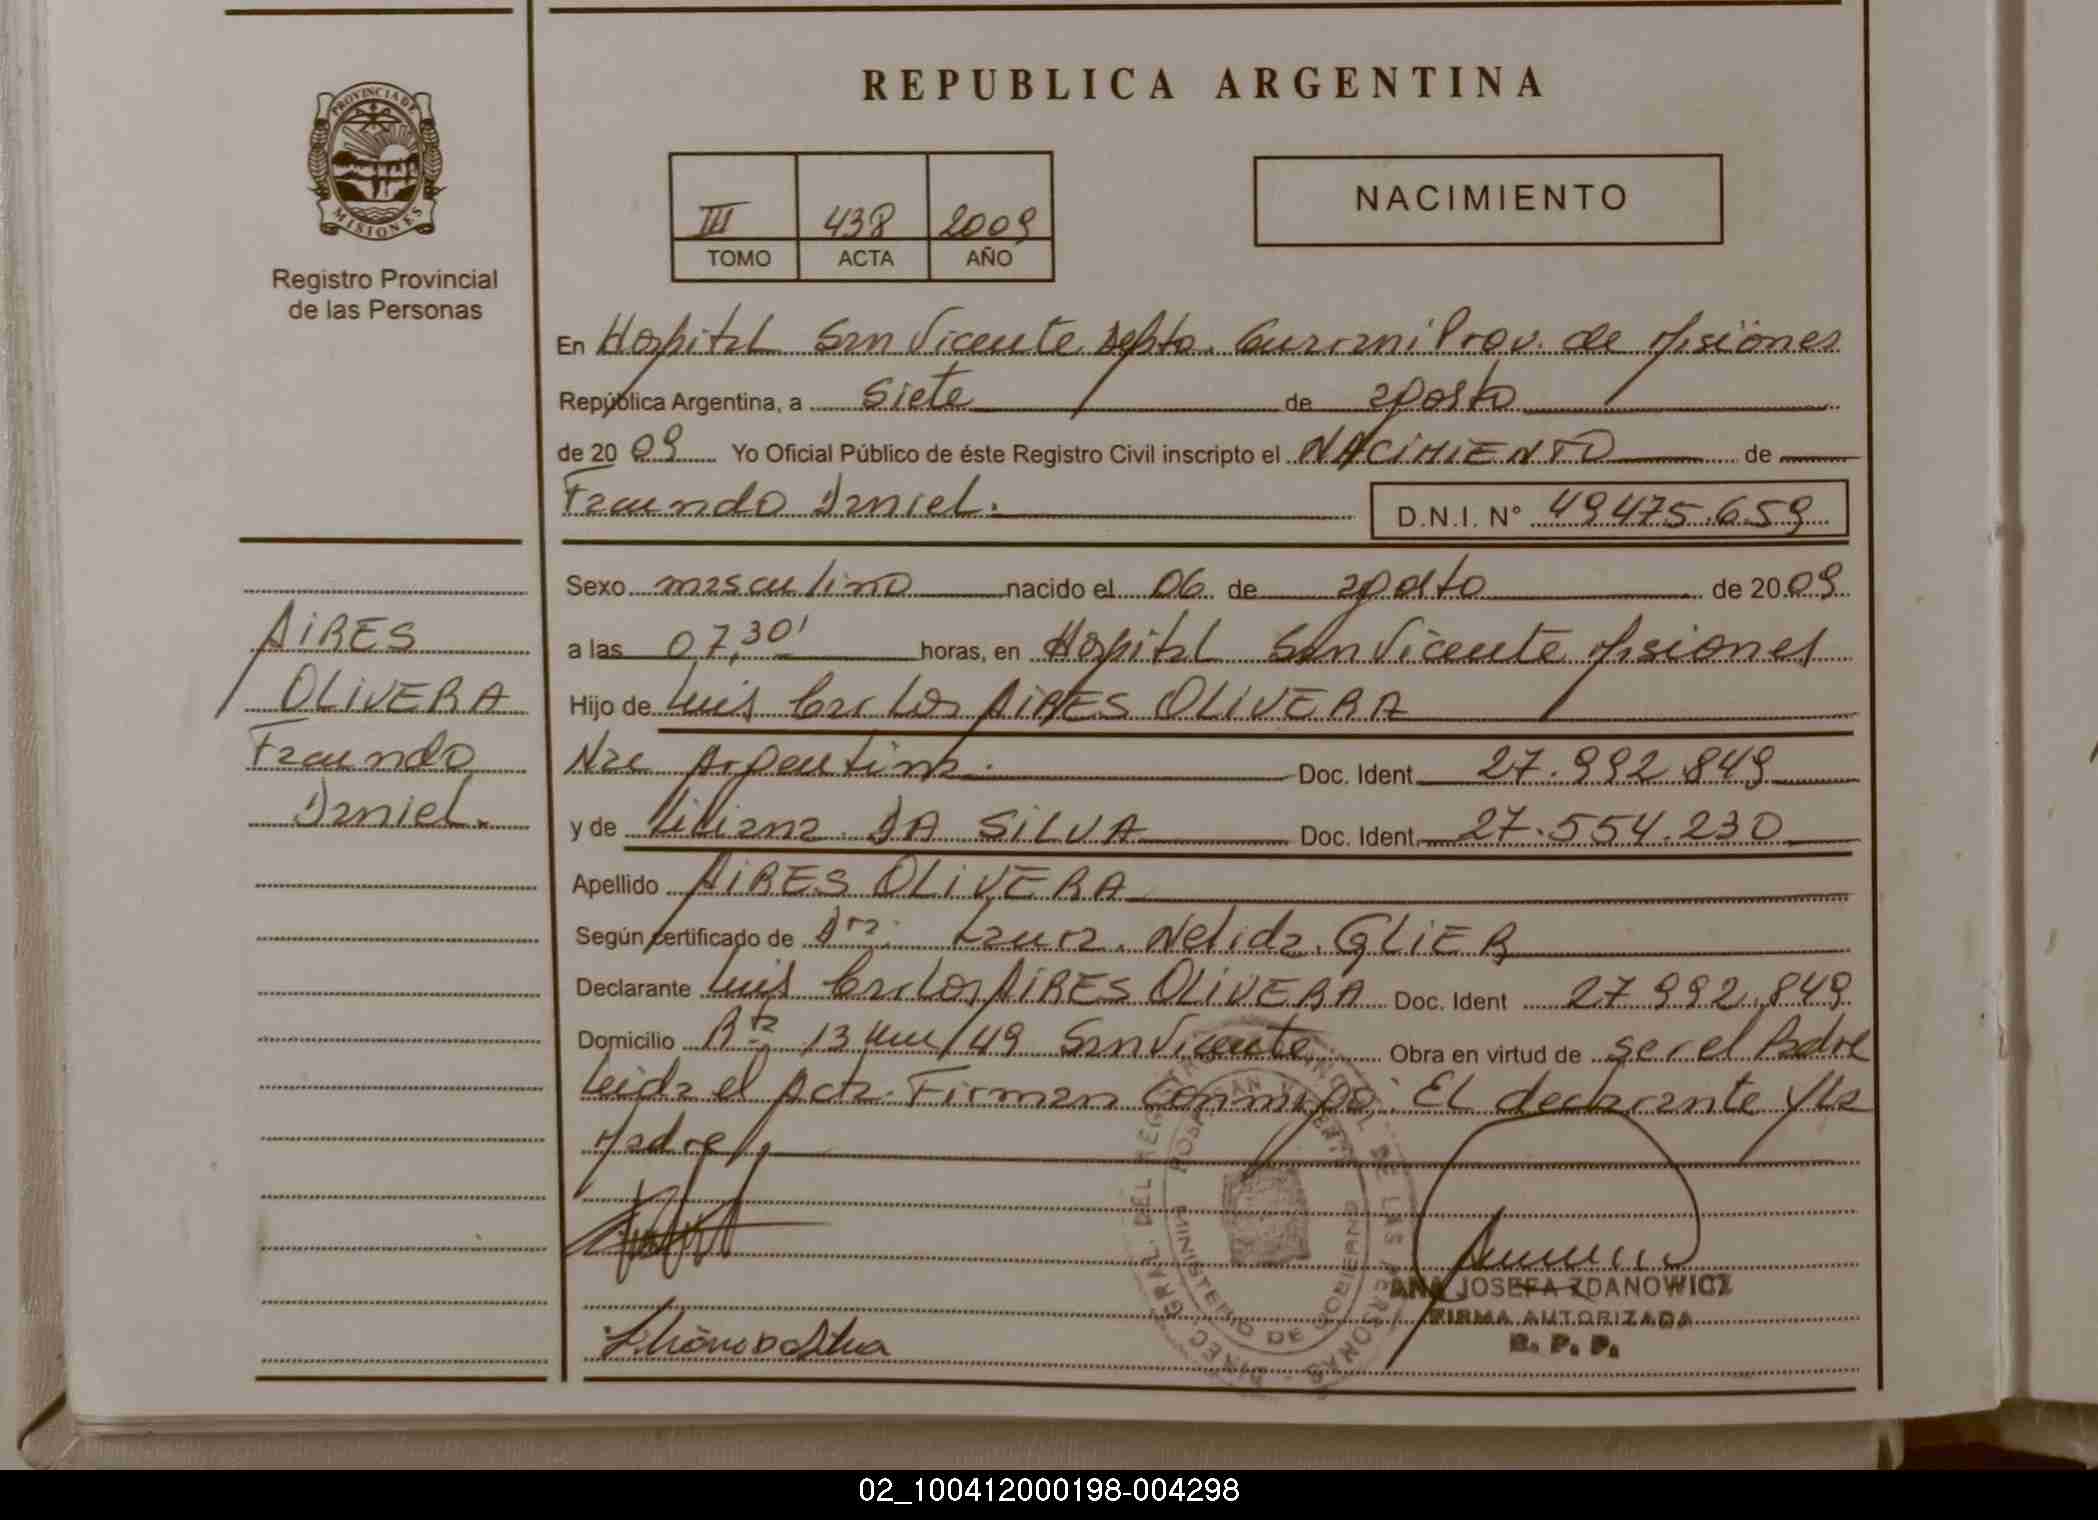 REPUBLICA ARGENTINA
PROVINCIA DE
MISIONES
Registro Provincial
de las Personas
III 438 2009
TOMO ACTA AÑO
NACIMIENTO
En Hospital San Vicente Depto. Guarani Prov. de Misiones
República Argentina, a siete de agosto
de 2009 Yo Oficial Público de éste Registro Civil inscripto el NACIMIENTO de
Facundo Daniel.
D.N.I. N° 49475.659
Sexo masculino nacido el 06 de agosto de 2009
a las 07,30' horas, en Hospital San Vicente Misiones
Hijo de Luis Carlos AIRES OLIVERA
Nac Argentina. Doc. Ident 27.992.849
y de Liliana DA SILVA Doc. Ident. 27.554.230
Apellido AIRES OLIVERA
Según certificado de Dra. Laura Nelida GLIER
Declarante Luis Carlos AIRES OLIVERA Doc. Ident 27992.849
Domicilio Rta 13 km/49 San Vicente Obra en virtud de ser el Padre
Leida el Acta. Firman conmigo: El declarante y la
Madre
AIRES
OLIVERA
Facundo
Daniel.
DIREC. GRAL. DEL REGISTRO DE LAS PERSONAS
HOSP. SAN VICENTE
MINISTERIO DE GOBIERNO
ANA JOSEFA ZDANOWICZ
FIRMA AUTORIZADA
R. P. P.
02_100412000198-004298